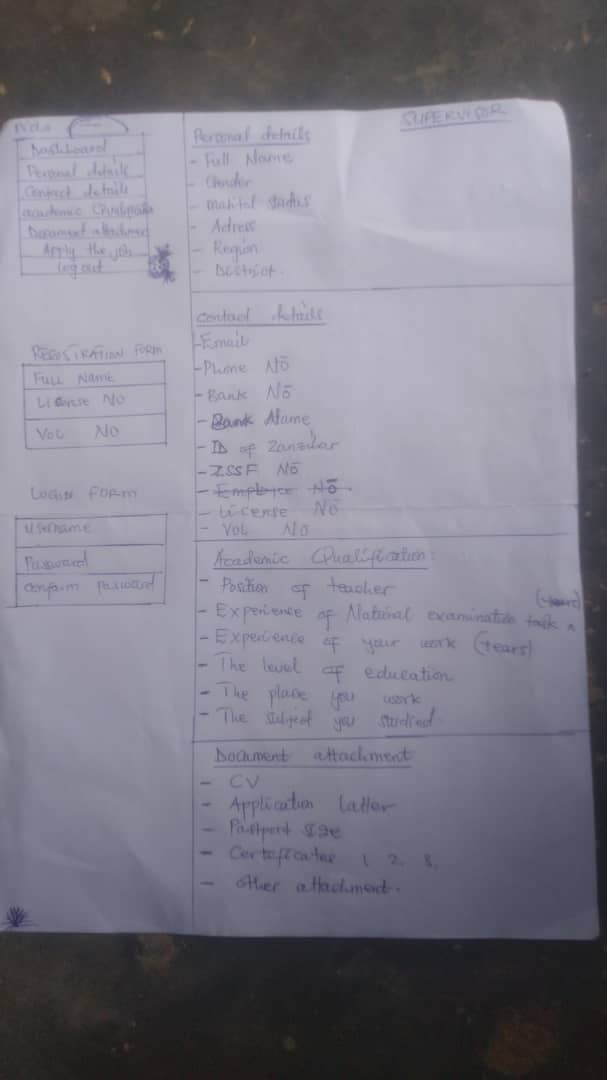 Dashboard
Personal details
Contact details
academic Qualification
Document attachment
Apply the job
log out
REGISTRATION FORM
FULL NAME
License NO
VOL NO
LOGIN FORM
Username
Password
Confirm Password
SUPERVISOR
Personal details
- Full Name
- Gender
- marital status
- Adress
- Region
- District.
Contact details
- Email
- Phone NO
- Bank NO
- Bank Name
- ID of Zanzibar
- ZSSF NO
- Employee NO
- License NO
- VOL NO
Academic Qualification:
- Position of teacher
- Experience of National examination task
(years)
- Experience of your work (Years)
- The level of education
- The place you work
- The subject you studied.
Document attachment
- CV
- Application Latter
- Pastport size
- Certificates 1, 2, 3.
- other attachment.